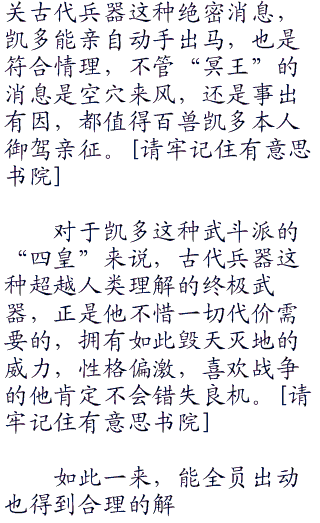 关古代兵器这种绝密消息，
凯多能亲自动手出马，也是
符合情理，不管“冥王”的
消息是空穴来风，还是事出
有因，都值得百兽凯多本人
御驾亲征。[请牢记住有意思
书院]
对于凯多这种武斗派的
“四皇”来说，古代兵器这
种超越人类理解的终极武
器，正是他不惜一切代价需
要的，拥有如此毁天灭地的
威力，性格偏激，喜欢战争
的他肯定不会错失良机。[请
牢记住有意思书院]
如此一来，能全员出动
也得到合理的解